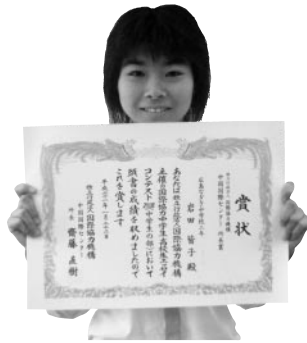 賞状
中国国際センター所長賞
広島女学院中学校二年
岩田 皆子 殿
あなたは独立行政法人国際協力機構
主催の国際協力中学生・高校生エッセイ
コンテスト2008中学生の部において
頭書の成績を収めましたので
これを賞します
独立行政法人国際協力機構
中国国際センター
所長 齊藤 直樹